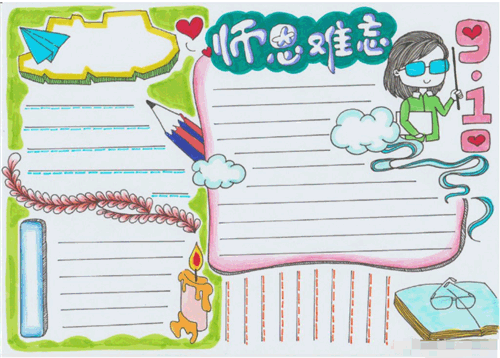 师恩难忘
9.10